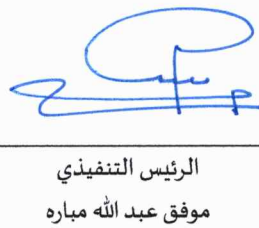 الرئيس التنفيذي
موفق عبد الله مباره